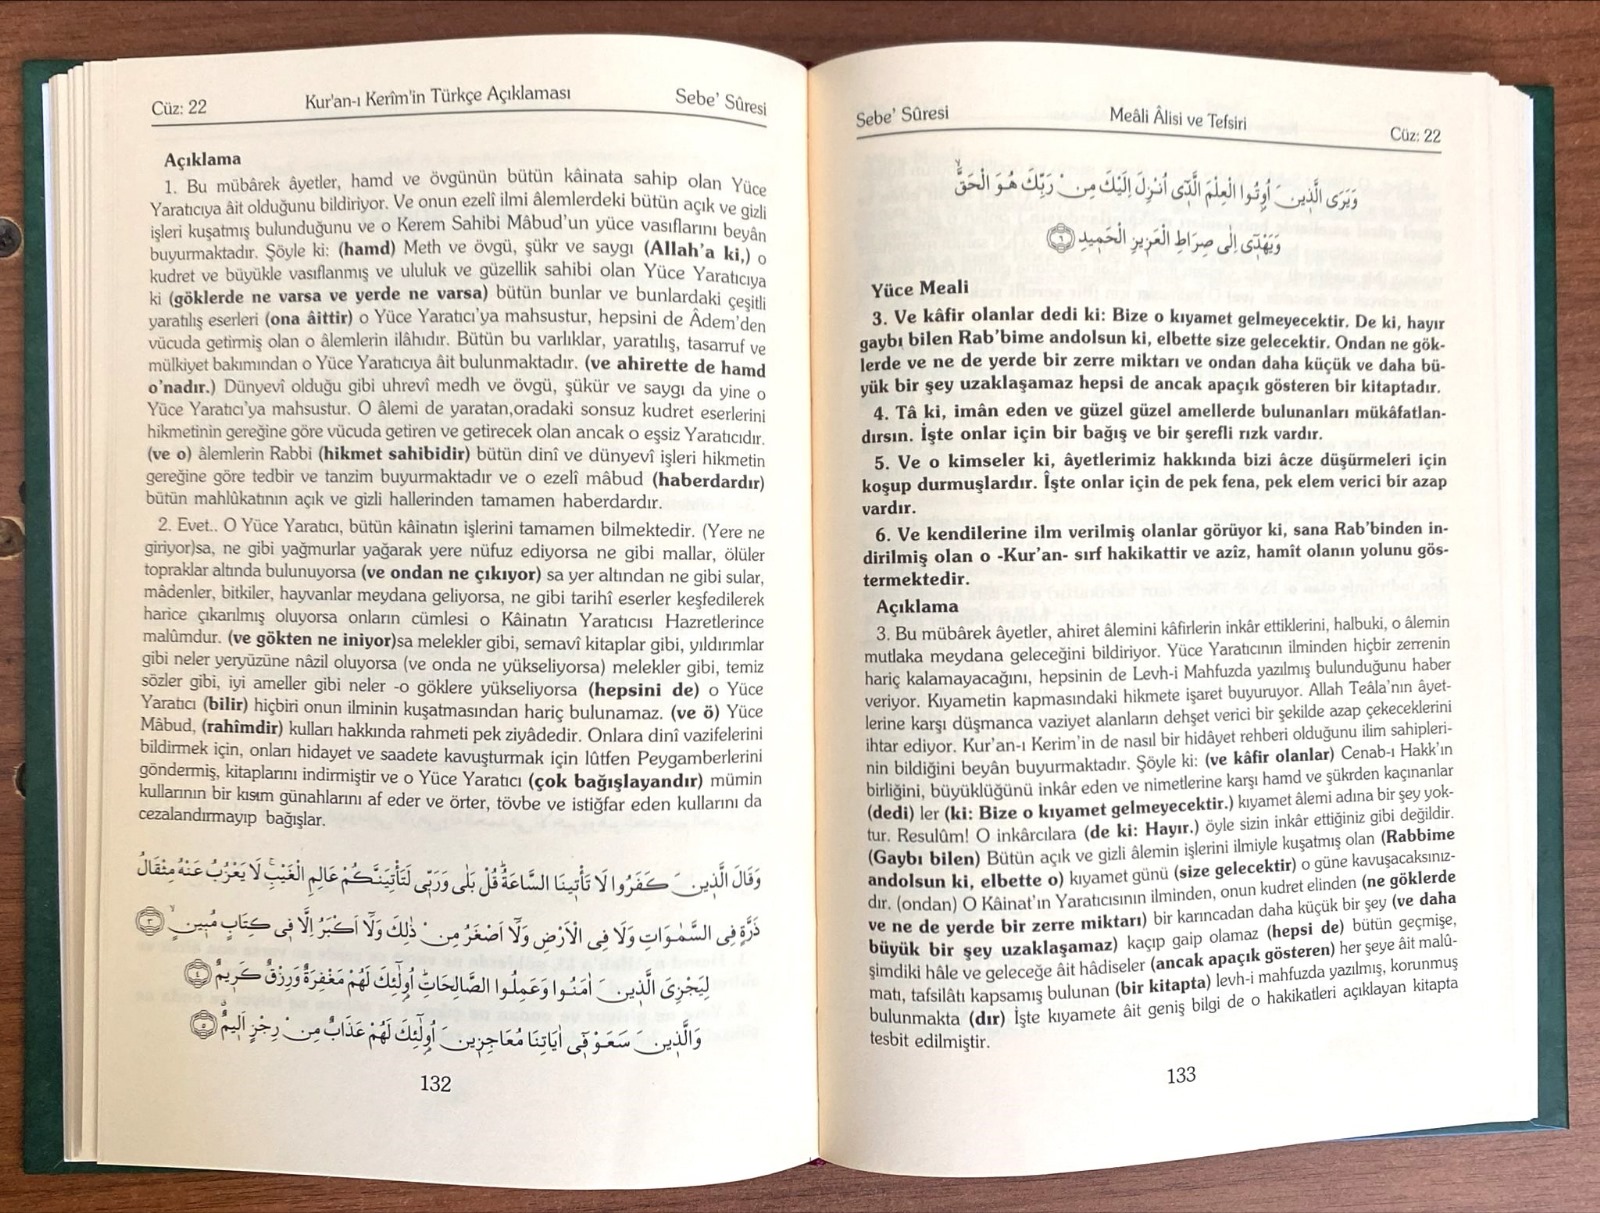 Cüz: 22 Kur'an-ı Kerîm'in Türkçe Açıklaması Sebe' Sûresi
Açıklama
1. Bu mübârek âyetler, hamd ve övgünün bütün kâinata sahip olan Yüce
Yaratıcıya âit olduğunu bildiriyor. Ve onun ezelî ilmi âlemlerdeki bütün açık ve gizli
işleri kuşatmış bulunduğunu ve o Kerem Sahibi Mâbud'un yüce vasıflarını beyân
buyurmaktadır. Şöyle ki: (hamd) Meth ve övgü, şükr ve saygı (Allah'a ki,) o
kudret ve büyükle vasıflanmış ve ululuk ve güzellik sahibi olan Yüce Yaratıcıya
ki (göklerde ne varsa ve yerde ne varsa) bütün bunlar ve bunlardaki çeşitli
yaratılış eserleri (ona âittir) o Yüce Yaratıcı'ya mahsustur, hepsini de Âdem'den
vücuda getirmiş olan o âlemlerin ilâhıdır. Bütün bu varlıklar, yaratılış, tasarruf ve
mülkiyet bakımından o Yüce Yaratıcıya âit bulunmaktadır. (ve ahirette de hamd
o'nadır.) Dünyevî olduğu gibi uhrevî medh ve övgü, şükür ve saygı da yine o
Yüce Yaratıcı'ya mahsustur. O âlemi de yaratan,oradaki sonsuz kudret eserlerini
hikmetinin gereğine göre vücuda getiren ve getirecek olan ancak o eşsiz Yaratıcıdır.
(ve o) âlemlerin Rabbi (hikmet sahibidir) bütün dinî ve dünyevî işleri hikmetin
gereğine göre tedbir ve tanzim buyurmaktadır ve o ezelî mâbud (haberdardır)
bütün mahlûkatının açık ve gizli hallerinden tamamen haberdardır.
2. Evet.. O Yüce Yaratıcı, bütün kâinatın işlerini tamamen bilmektedir. (Yere ne
giriyor)sa, ne gibi yağmurlar yağarak yere nüfuz ediyorsa ne gibi mallar, ölüler
topraklar altında bulunuyorsa (ve ondan ne çıkıyor) sa yer altından ne gibi sular,
mâdenler, bitkiler, hayvanlar meydana geliyorsa, ne gibi tarihî eserler keşfedilerek
harice çıkarılmış oluyorsa onların cümlesi o Kâinatın Yaratıcısı Hazretlerince
malûmdur. (ve gökten ne iniyor)sa melekler gibi, semavî kitaplar gibi, yıldırımlar
gibi neler yeryüzüne nâzil oluyorsa (ve onda ne yükseliyorsa) melekler gibi, temiz
sözler gibi, iyi ameller gibi neler -o göklere yükseliyorsa (hepsini de) o Yüce
Yaratıcı (bilir) hiçbiri onun ilminin kuşatmasından hariç bulunamaz. (ve ö) Yüce
Mâbud, (rahîmdir) kulları hakkında rahmeti pek ziyâdedir. Onlara dinî vazifelerini
bildirmek için, onları hidayet ve saadete kavuşturmak için lûtfen Peygamberlerini
göndermiş, kitaplarını indirmiştir ve o Yüce Yaratıcı (çok bağışlayandır) mümin
kullarının bir kısım günahlarını af eder ve örter, tövbe ve istiğfar eden kullarını da
cezalandırmayıp bağışlar.
وَقَالَ الَّذ۪ينَ كَفَرُوا لَا تَأْت۪ينَا السَّاعَةُۜ قُلْ بَلٰى وَرَبّ۪ي لَتَأْتِيَنَّكُمْ عَالِمِ الْغَيْبِۚ لَا يَعْزُبُ عَنْهُ مِثْقَالُ
ذَرَّةٍ فِي السَّمٰوَاتِ وَلَا فِي الْاَرْضِ وَلَٓا اَصْغَرُ مِنْ ذٰلِكَ وَلَٓا اَكْبَرُ اِلَّا ف۪ي كِتَابٍ مُب۪ينٍۙ ﴿٣﴾
لِيَجْزِيَ الَّذ۪ينَ اٰمَنُوا وَعَمِلُوا الصَّالِحَاتِۜ اُو۬لٰٓئِكَ لَهُمْ مَغْفِرَةٌ وَرِزْقٌ كَر۪يمٌ ﴿٤﴾
وَالَّذ۪ينَ سَعَوْ ف۪ٓي اٰيَاتِنَا مُعَاجِز۪ينَ اُو۬لٰٓئِكَ لَهُمْ عَذَابٌ مِنْ رِجْزٍ اَل۪يمٌ ﴿٥﴾
132
Sebe' Sûresi Meâli Âlisi ve Tefsiri Cüz: 22
وَيَرَى الَّذ۪ينَ اُو۫تُوا الْعِلْمَ الَّذ۪ٓي اُنْزِلَ اِلَيْكَ مِنْ رَبِّكَ هُوَ الْحَقَّۙ
وَيَهْد۪ٓي اِلٰى صِرَاطِ الْعَز۪يزِ الْحَم۪يدِ ﴿٦﴾
Yüce Meali
3. Ve kâfir olanlar dedi ki: Bize o kıyamet gelmeyecektir. De ki, hayır
gaybı bilen Rab'bime andolsun ki, elbette size gelecektir. Ondan ne gök-
lerde ve ne de yerde bir zerre miktarı ve ondan daha küçük ve daha bü-
yük bir şey uzaklaşamaz hepsi de ancak apaçık gösteren bir kitaptadır.
4. Tâ ki, imân eden ve güzel güzel amellerde bulunanları mükâfatlan-
dırsın. İşte onlar için bir bağış ve bir şerefli rızk vardır.
5. Ve o kimseler ki, âyetlerimiz hakkında bizi âcze düşürmeleri için
koşup durmuşlardır. Îşte onlar için de pek fena, pek elem verici bir azap
vardır.
6. Ve kendilerine ilm verilmiş olanlar görüyor ki, sana Rab'binden in-
dirilmiş olan o -Kur'an- sırf hakikattir ve azîz, hamît olanın yolunu gös-
termektedir.
Açıklama
3. Bu mübârek âyetler, ahiret âlemini kâfirlerin inkâr ettiklerini, halbuki, o âlemin
mutlaka meydana geleceğini bildiriyor. Yüce Yaratıcının ilminden hiçbir zerrenin
hariç kalamayacağını, hepsinin de Levh-i Mahfuzda yazılmış bulunduğunu haber
veriyor. Kıyametin kapmasındaki hikmete işaret buyuruyor. Allah Teâla'nın âyet-
lerine karşı düşmanca vaziyet alanların dehşet verici bir şekilde azap çekeceklerini
ihtar ediyor. Kur'an-ı Kerim'in de nasıl bir hidâyet rehberi olduğunu ilim sahipleri-
nin bildiğini beyân buyurmaktadır. Şöyle ki: (ve kâfir olanlar) Cenab-ı Hakk'ın
birliğini, büyüklüğünü inkâr eden ve nimetlerine karşı hamd ve şükrden kaçınanlar
(dedi) ler (ki: Bize o kıyamet gelmeyecektir.) kıyamet âlemi adına bir şey yok-
tur. Resulûm! O inkârcılara (de ki: Hayır.) öyle sizin inkâr ettiğiniz gibi değildir.
(Gaybı bilen) Bütün açık ve gizli âlemin işlerini ilmiyle kuşatmış olan (Rabbime
andolsun ki, elbette o) kıyamet günü (size gelecektir) o güne kavuşacaksınız-
dır. (ondan) O Kâinat'ın Yaratıcısının ilminden, onun kudret elinden (ne göklerde
ve ne de yerde bir zerre miktarı) bir karıncadan daha küçük bir şey (ve daha
büyük bir şey uzaklaşamaz) kaçıp gaip olamaz (hepsi de) bütün geçmişe,
şimdiki hâle ve geleceğe âit hâdiseler (ancak apaçık gösteren) her şeye âit malû-
matı, tafsilâtı kapsamış bulunan (bir kitapta) levh-i mahfuzda yazılmış, korunmuş
bulunmakta (dır) İşte kıyamete âit geniş bilgi de o hakikatleri açıklayan kitapta
tesbit edilmiştir.
133